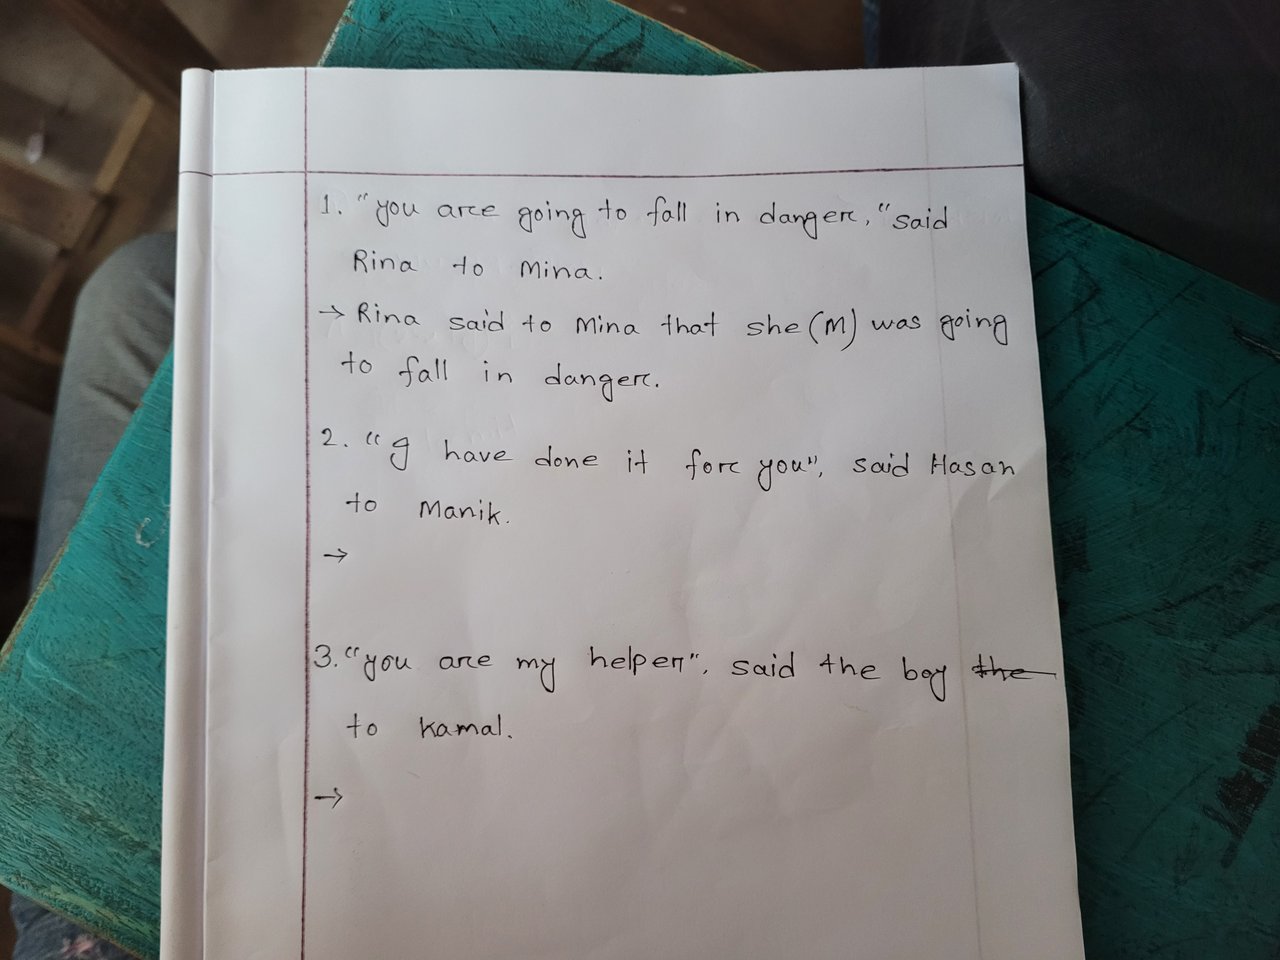 1. "you are going to fall in danger, "said
Rina to Mina.
→ Rina said to Mina that she (M) was going
to fall in danger.
2. "I have done it for you", said Hasan
to Manik.
→
3. "you are my helper", said the boy the
to Kamal.
→